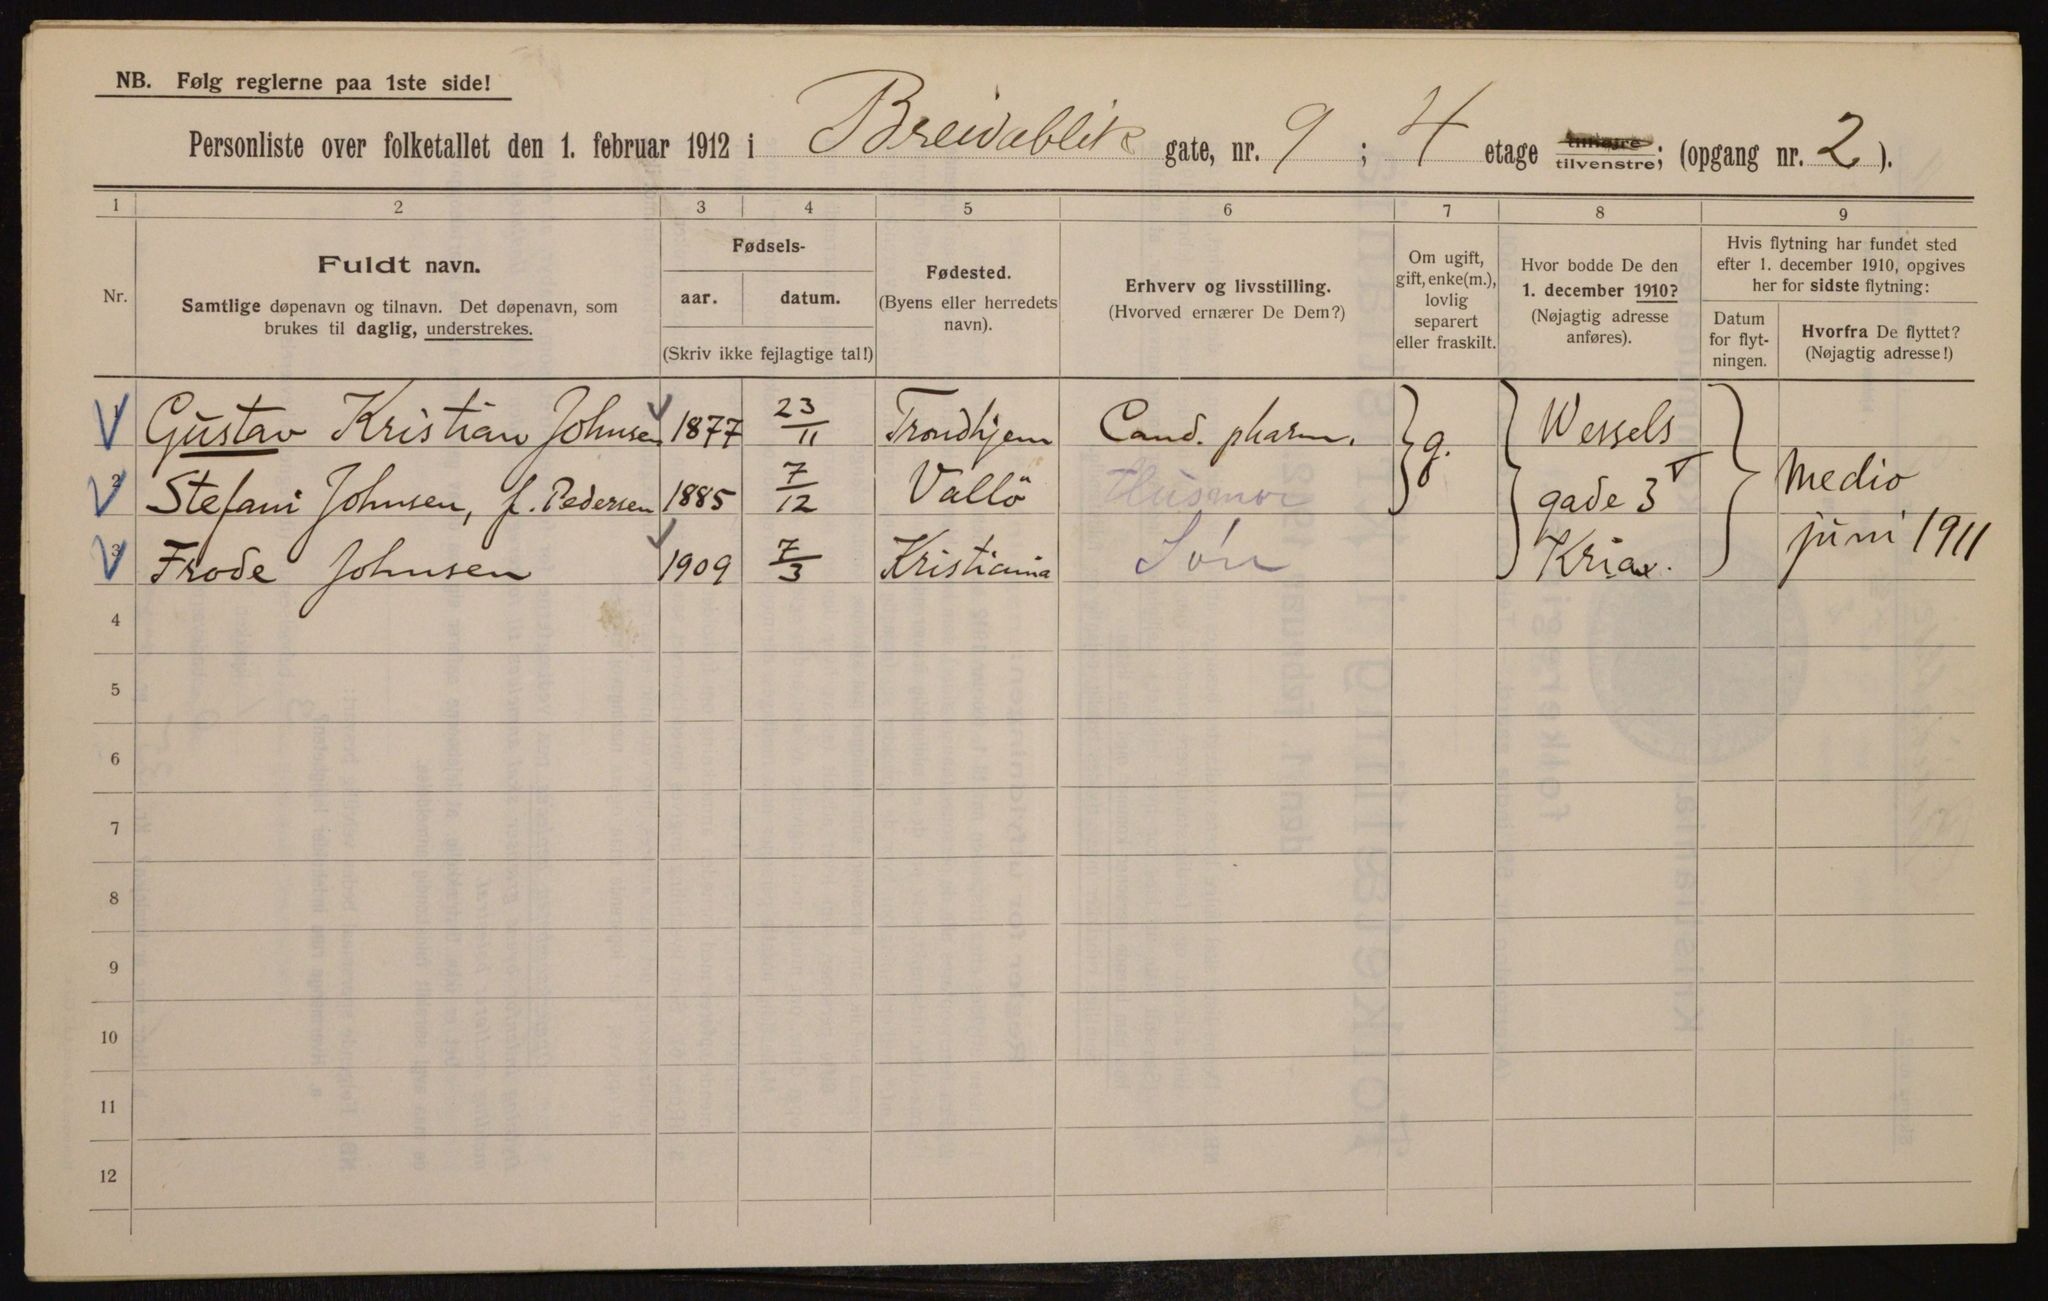 NB. Følg reglerne paa 1ste side!
Personliste over folketallet den 1. februar 1912 i Breidablik gate, nr. 9 ; 4 etage tilhøjre tilvenstre; (opgang nr. 2 ).
1 2 3 4 5 6 7 8 9
Nr.
Fuldt navn.
Samtlige døpenavn og tilnavn. Det døpenavn, som
brukes til daglig, understrekes.
Fødsels-
aar. datum.
(Skriv ikke fejlagtige tal!)
Fødested.
(Byens eller herredets
navn).
Erhverv og livsstilling.
(Hvorved ernærer De Dem?)
Om ugift,
gift, enke(m.),
lovlig
separert
eller fraskilt.
Hvor bodde De den
1. december 1910?
(Nøjagtig adresse
anføres).
Hvis flytning har fundet sted
efter 1. december 1910, opgives
her for sidste flytning:
Datum
for flyt-
ningen.
Hvorfra De flyttet?
(Nøjagtig adresse!)
1 Gustav Kristian Johnsen 1877 23/11 Trondhjem Cand. pharm. g. Wessels
2 Stefani Johnsen, f. Pedersen 1885 7/12 Vallö Husmor gade 3 Medio
3 Frode Johnsen 1909 7/3 Kristiania Søn Kria. juni 1911
4
5
6
7
8
9
10
11
12